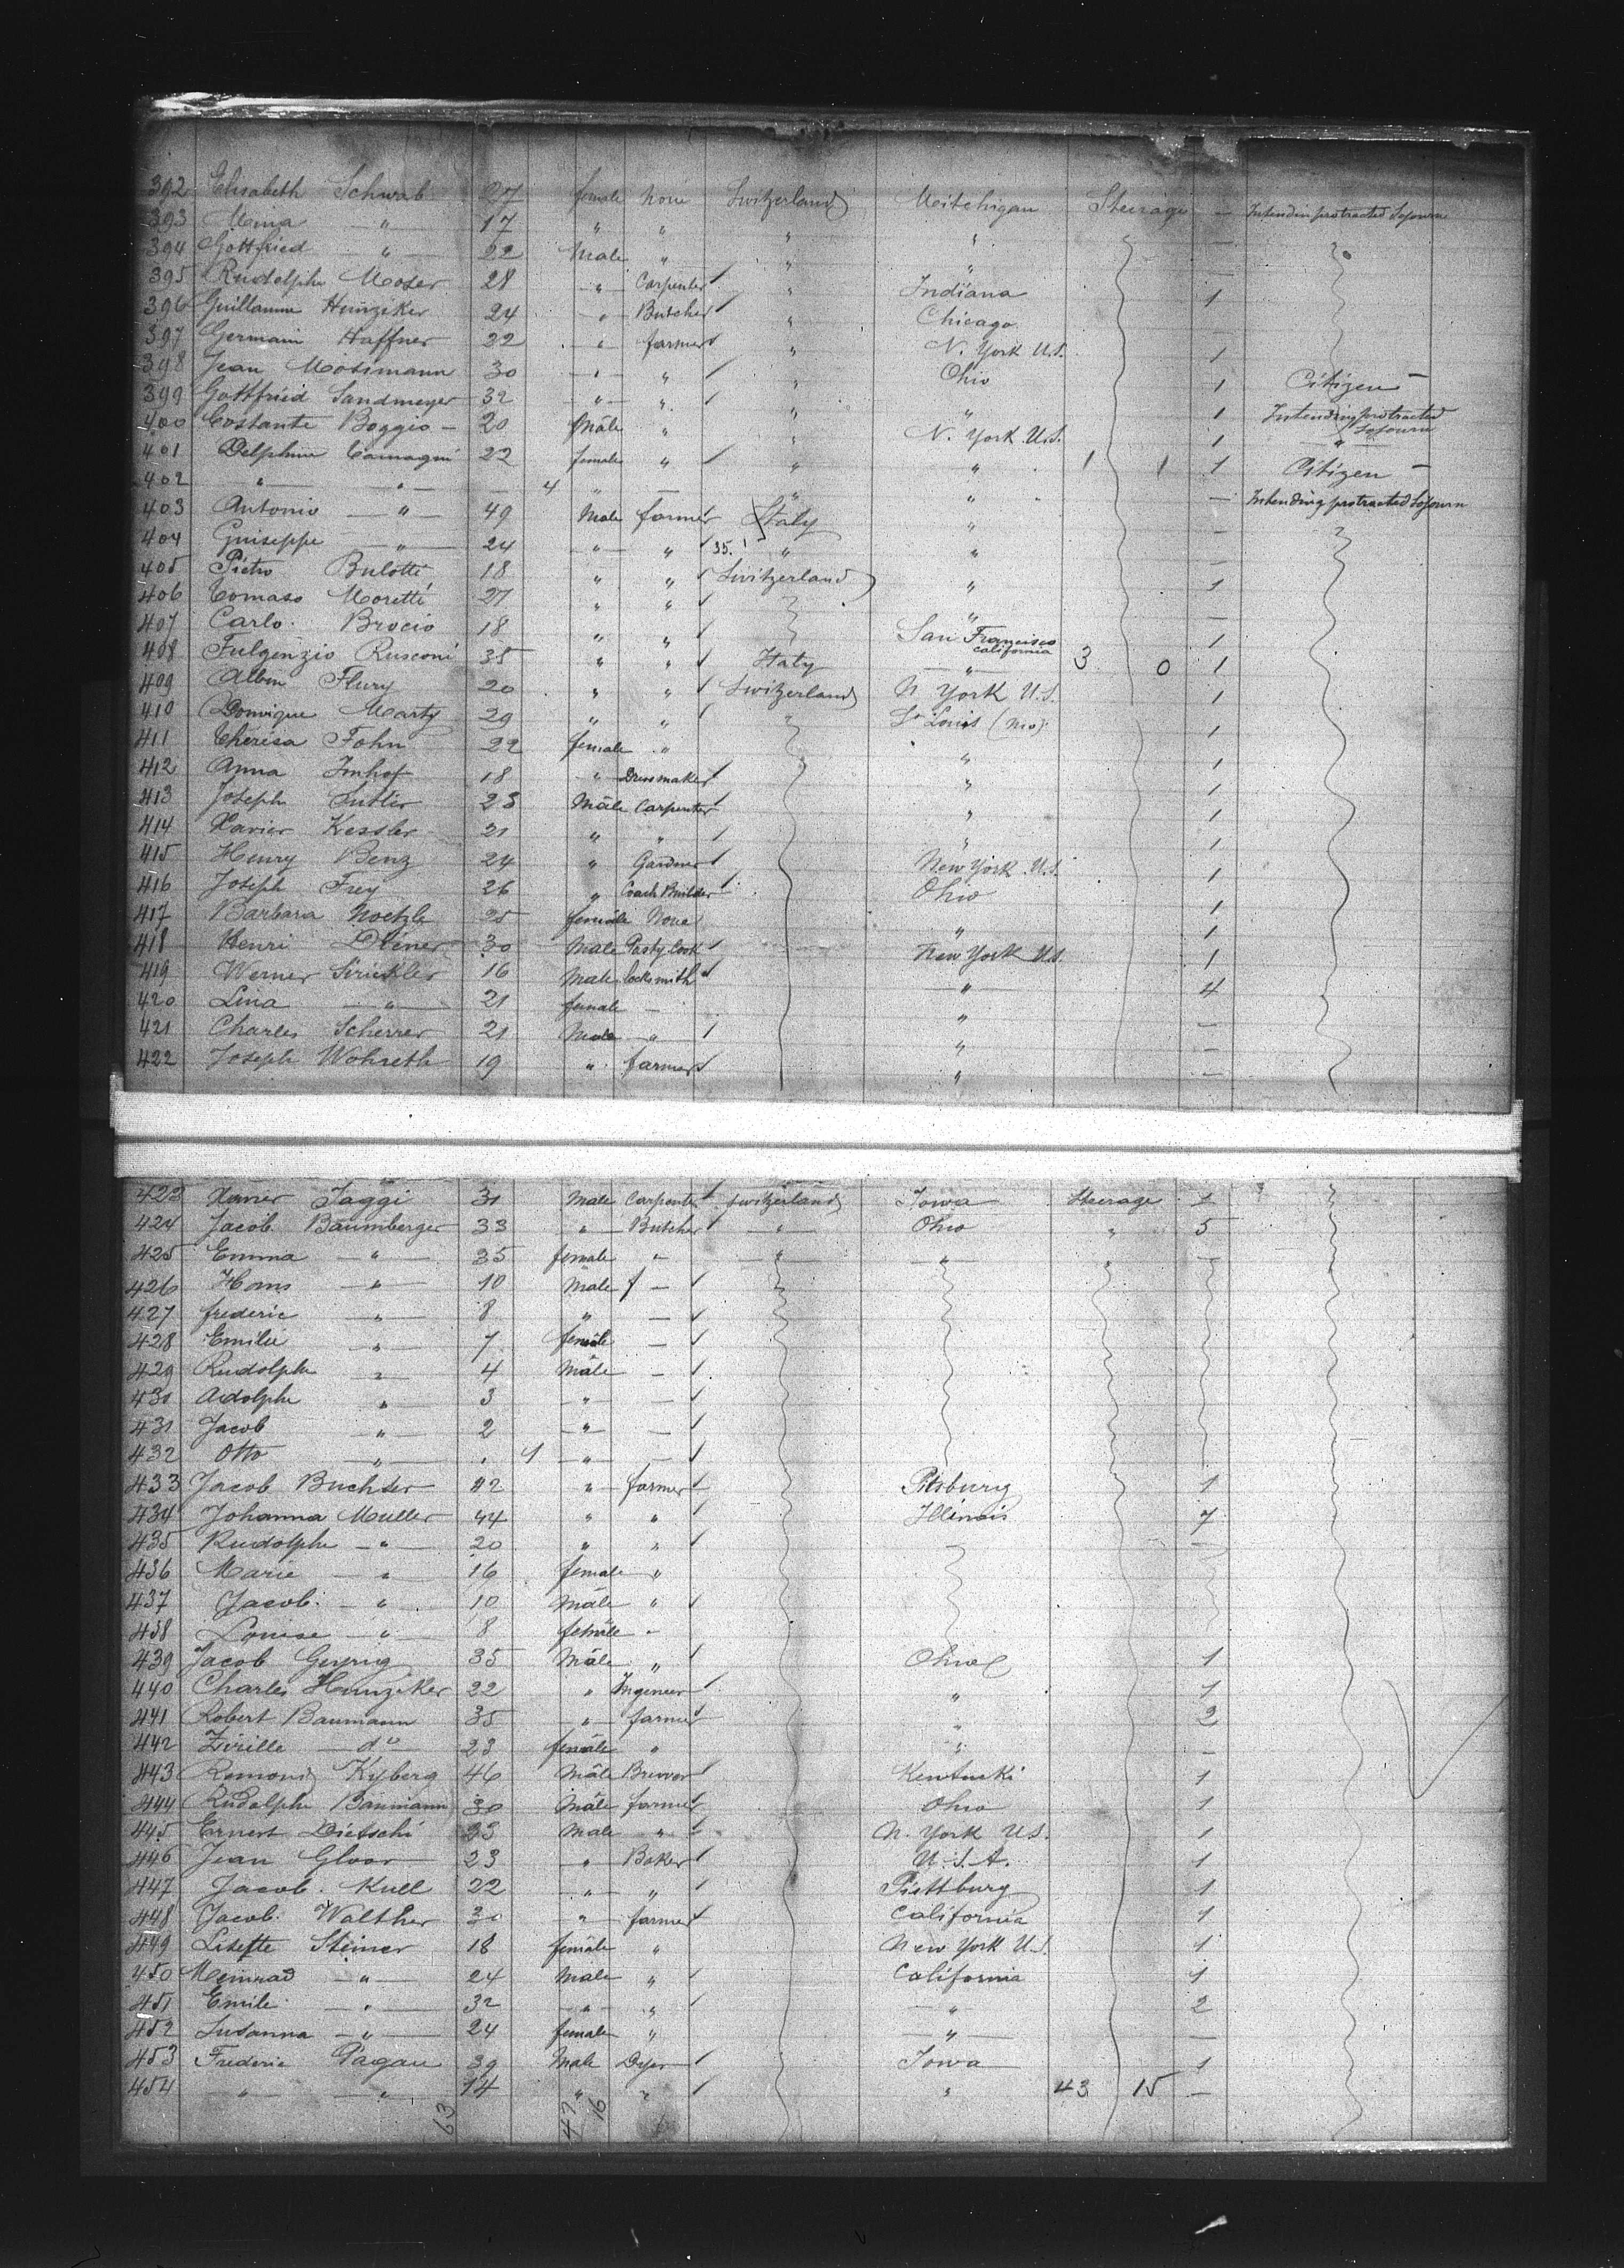 392 Elisabeth Schwab 27 female None Switzerland Meitchigan Steerage — Intendin protracted Sojourn
393 " 17 " " " " —
394 Gottfried " 22 Male " " " —
395 Rudolphe Moser 28 " Carpenter " Indiana 1
396 Guillaume Hunziker 24 " Butcher " Chicago
397 Germain Haffner 22 " farmer " N. York U.S. 1
398 Jean Mosimann 30 " " " Ohio 1 Citizen —
399 Gottfried Sandmeyer 32 " " " " 1 Intending protracted Sojourn
400 Costante Boggio — 20 Male " " N. York U.S. 1 "
401 Delphine Camagni 22 female " " " 1 1 1 Citizen —
402 " " — 4 " — " " — Intending protracted Sojourn
403 Antonio " 49 Male farmer Italy " —
404 Guiseppe " 24 " " 35. " " —
405 Pietro Bulotti 18 " " Switzerland " 1
406 Tomaso Moretti 27 " " " —
407 Carlo Brocio 18 " " San Francisco California 1
408 Fulgenzio Rusconi 35 " " Italy " 3 0 1
409 Albin Flury 20 " " Switzerland N York U.S. 1
410 Domique Marty 29 " " " St Louis (Mo) 1
411 Theresa Fohn 22 female " " 1
412 Anna Imhof 18 " Dressmaker " 1
413 Joseph Sutter 23 Male Carpenter " 1
414 Xavier Kessler 21 " " " 1
415 Henry Benz 24 " Gardner New York U.S. 1
416 Joseph Frey 26 " Coach Builder Ohio 1
417 Barbara Noetzle 25 female None " 1
418 Henri Diener 30 Male Pasty Cook New York U.S. 1
419 Werner Strickler 16 Male locksmith " 4
420 Lina " 21 female — " —
421 Charles Scherrer 21 Male " " —
422 Joseph Wohreth 19 " farmer " —
423 Xavier Jaggi 31 Male Carpenter Switzerland Iowa Steerage 1
424 Jacob Baumberger 33 " Butcher " Ohio " 5
425 Emma " 35 female " " " " —
426 Hans " 10 Male —
427 frederic " 8 " —
428 Emilie " 7 female —
429 Rudolphe " 4 Male —
431 Adolphe " 3 " —
431 Jacob " 2 " —
432 Otto " 4 " —
433 Jacob Buchser 42 " farmer Pitsburg 1
434 Johanna Muller 44 " " Illinois 7
435 Rudolphe " 20 " " —
436 Marie " 16 female "
437 Jacob " 10 Male "
438 Louise " 8 female "
439 Jacob Gerprig 35 Male " Ohio 1
440 Charles Hunziker 22 " Ingeneer " 1
441 Robert Baumann 35 " farmer " 2
442 Zirille do 23 female " " —
443 Kyberg 46 Male Brewer Kentuski 1
444 Rudolphe Baumann 30 Male farmer Ohio 1
445 Ernest Dietschi 23 Male " N. York U.S. 1
446 Jean Gloor 23 " Baker U.S.A. 1
447 Jacob Kull 22 " " Pisttburg 1
448 Jacob Walther 30 " farmer California 1
449 Lisette Steiner 18 female " New York U.S. 1
450 Meinrad " 24 Male " California 1
451 Emile " 32 " " " 2
452 Susanna " 24 female " " —
453 Frederic Pagan 39 Male Dyer Iowa 1
454 " " 14 " " " 43 15 —
63 47 16